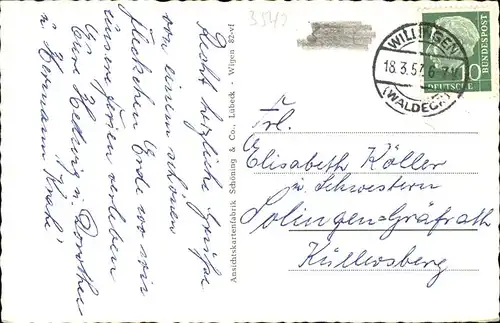 3542
Recht herzliche Grüße
von einem schönen
Fleckchen Erde wo wir
unsere Ferien verleben
Eure Hedwig u. Dorothee
u. Hermann
Ansichtskartenfabrik Schöning & Co., Lübeck · Wigen 82-vf
WILLINGEN
18.3.57.6
(WALDECK)
10
DEUTSCHE
BUNDESPOST
Frl.
Elisabeth Köller
u. Schwestern
Solingen-Gräfrath
Küllersberg